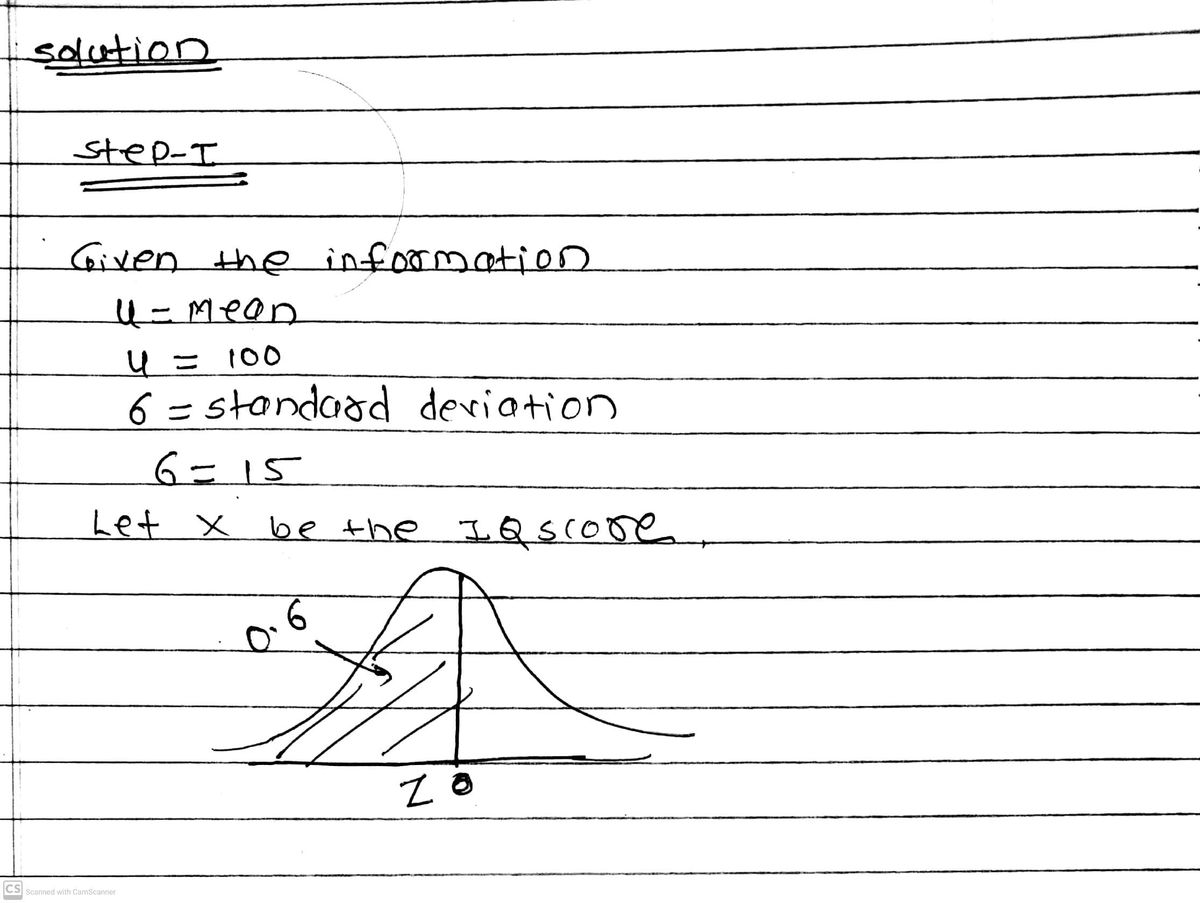 solution
Step-I
Given the information
u = Mean
u = 100
6 = standard deviation
6 = 15
Let X be the IQ score,
0.6
Z 0
CS Scanned with CamScanner